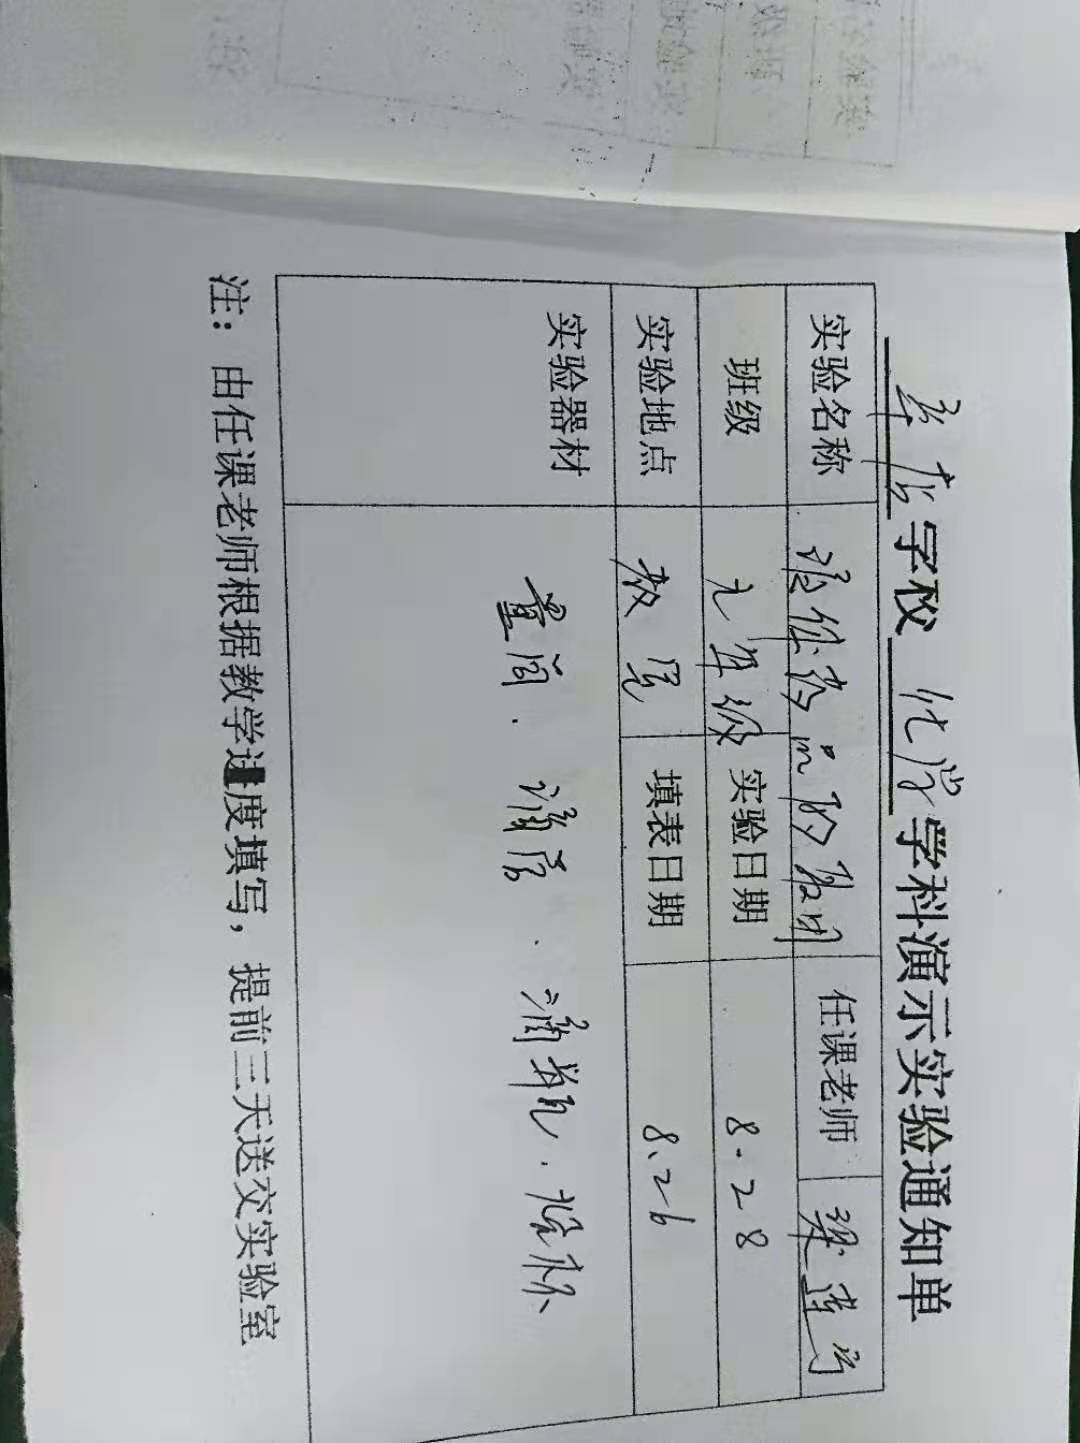 学校 化学 学科演示实验通知单
实验名称 液体药品的取用 任课老师 梁
班级 九年级 实验日期 8.28
实验地点 教室 填表日期 8.26
实验器材 量筒. 滴管. 滴瓶. 烧杯
注：由任课老师根据教学进度填写，提前三天送交实验室